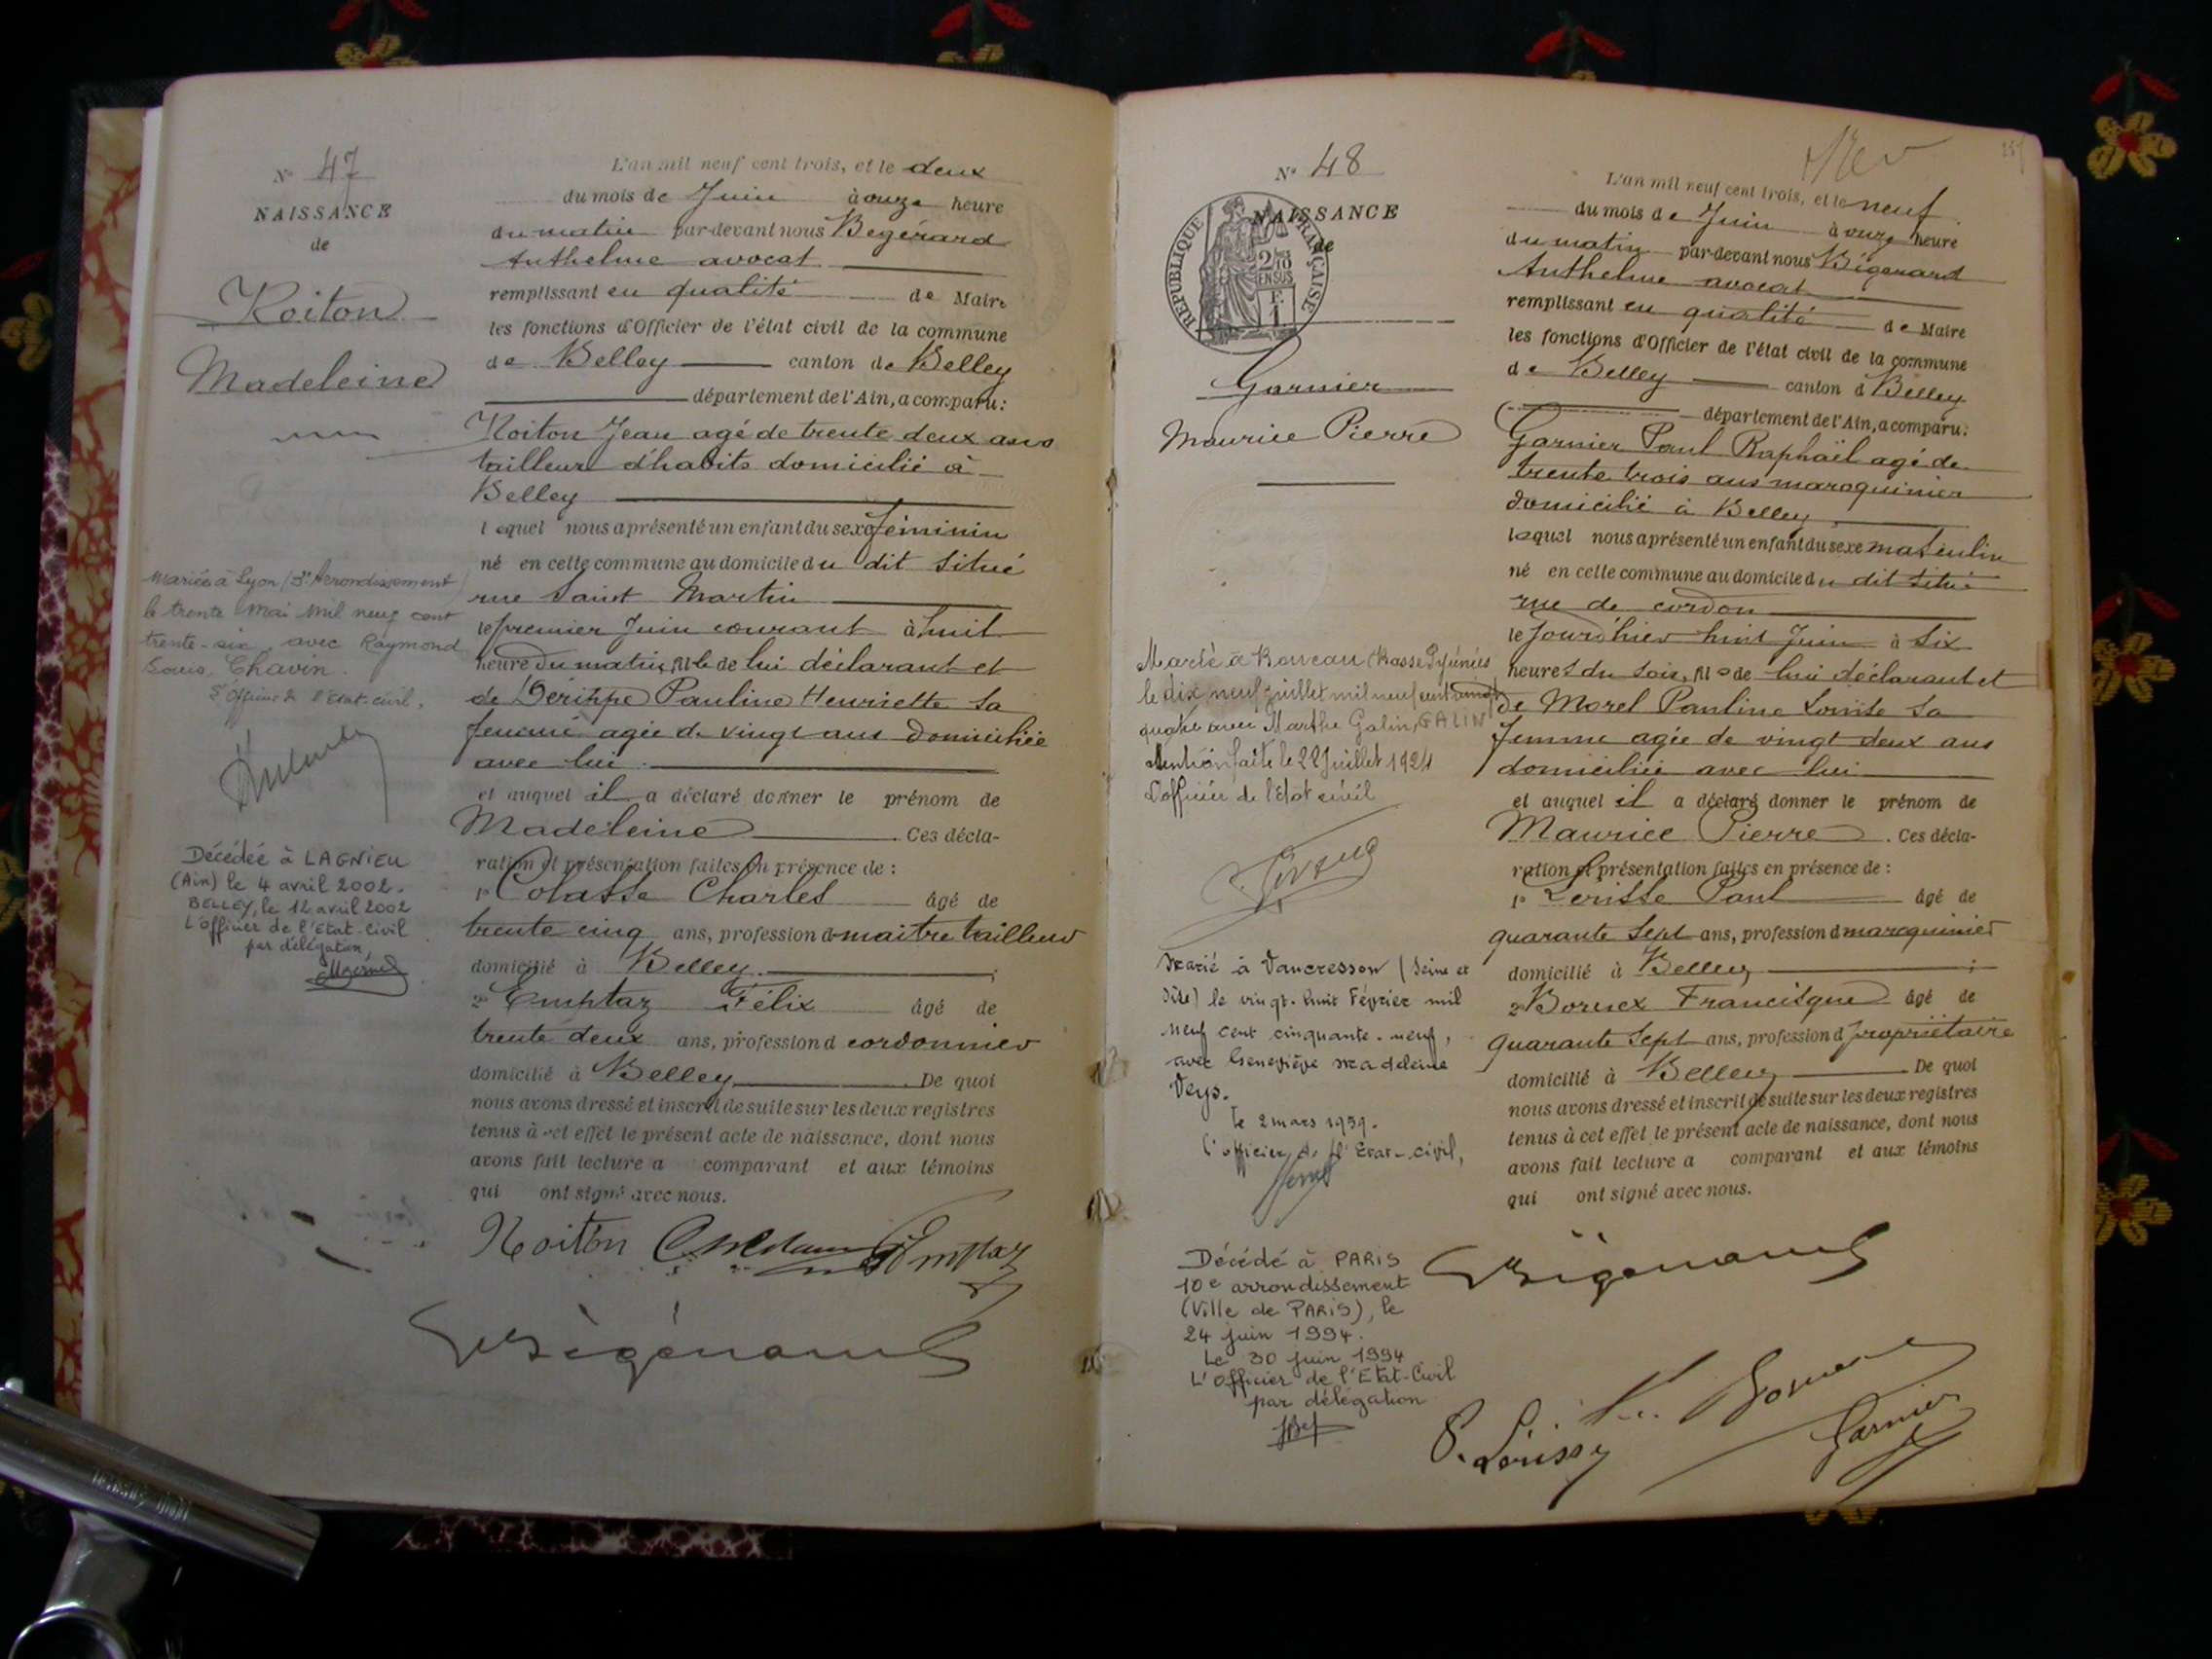 N° 47
NAISSANCE
de
Noiton
Madeleine
Mariée à Lyon (3e Arrondissement)
le trente mai mil neuf cent
trente-six avec Raymond
Louis Chavin.
L'Officier de l'état-civil,
Décédée à LAGNIEU
(Ain) le 4 avril 2002.
BELLEY, le 12 avril 2002
L'officier de l'Etat-civil
par délégation,
L'an mil neuf cent trois, et le deux
du mois de Juin à onze heure
du matin par-devant nous Bégérard
Anthelme avocat
remplissant en qualité de Maire
les fonctions d'Officier de l'état civil de la commune
de Belley canton de Belley
département de l'Ain, a comparu:
Noiton Jean agé de trente deux ans
tailleur d'habits domicilié à
Belley
lequel nous a présenté un enfant du sexe féminin
né en cette commune au domicile du dit situé
rue Saint Martin
le premier Juin courant à huit
heure du matin, fille de lui déclarant et
de Pauline Henriette sa
femme agée de vingt ans domiciliée
avec lui
et auquel il a déclaré donner le prénom de
Madeleine. Ces décla-
ration et présentation faites en présence de :
1° Colasse Charles âgé de
trente cinq ans, profession de maitre tailleur
domicilié à Belley;
2° Emptaz Félix âgé de
trente deux ans, profession d cordonnier
domicilié à Belley. De quoi
nous avons dressé et inscrit de suite sur les deux registres
tenus à cet effet le présent acte de naissance, dont nous
avons fait lecture a comparant et aux témoins
qui ont signé avec nous.
Noiton Emptaz
Bégérard
N° 48
RÉPUBLIQUE FRANÇAISE
2/10 EN SUS
F. 1
NAISSANCE
de
Garnier
Maurice Pierre
Marié à (Basse Pyrénées
le dix neuf juillet mil neuf cent vingt
quatre avec Marthe Galin, GALIN
Mention faite le 22 Juillet 1924
L'officier de l'état civil
Marié à Vaucresson (Seine et
Oise) le vingt-huit Février mil
neuf cent cinquante-neuf,
avec Geneviève Madeleine
Veys.
Le 2 mars 1959.
L'officier de l'Etat-civil,
Décédé à PARIS
10e arrondissement
(Ville de PARIS), le
24 juin 1994.
Le 30 juin 1994
L'Officier de l'Etat-Civil
par délégation
L'an mil neuf cent trois, et le neuf
du mois de Juin à onze heure
du matin par-devant nous Bégérard
Anthelme avocat
remplissant en qualité de Maire
les fonctions d'Officier de l'état civil de la commune
de Belley canton d Belley
département de l'Ain, a comparu:
Garnier Paul Raphaël agé de
trente trois ans maroquinier
domicilié à Belley
lequel nous a présenté un enfant du sexe masculin
né en cette commune au domicile du dit situé
rue de cordon
le Jour d'hier huit Juin à six
heures du soir, fils de lui déclarant et
de Morel Pauline Louise sa
femme agée de vingt deux ans
domiciliée avec lui
et auquel il a déclaré donner le prénom de
Maurice Pierre. Ces décla-
ration et présentation faites en présence de :
1° Lérisse Paul âgé de
quarante sept ans, profession d maroquinier
domicilié à Belley;
2° Bornex Francisque âgé de
quarante sept ans, profession d propriétaire
domicilié à Belley De quoi
nous avons dressé et inscrit de suite sur les deux registres
tenus à cet effet le présent acte de naissance, dont nous
avons fait lecture a comparant et aux témoins
qui ont signé avec nous.
Bégérard
P. Lérisse
Garnier